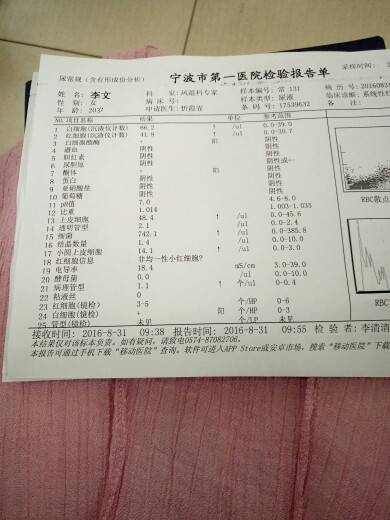 尿常规(含有形成份分析) 宁波市第一医院检验报告单 采样时间: 2
姓 名: 李文 科 室: 风湿科专家 样本编号: 常 131 病 历 号: 20160831
性 别: 女 病 床 号: 样本类型: 尿液 临床诊断: 系统性红
年 龄: 20岁 申请医生: 忻霞蓉 条 码 号: 17539632 备 注:
NO. 项目名称 结果 单位 参考范围
1 白细胞(沉渣仪计数) 66.2 ↑ /ul 0.0-39.0
2 红细胞(沉渣仪计数) 41.9 ↑ /ul 0.0-30.7
3 白细胞酯酶 + 阳 阴性
4 潜血 阴性 阴性
5 胆红素 阴性 阴性
6 尿胆原 阴性 阴性或+-
7 酮体 + 阳 阴性
8 蛋白 阴性 阴性
9 亚硝酸盐 阴性 阴性
10 葡萄糖 阴性 阴性
11 pH值 7.0 4.6-8.0
12 比重 1.014 1.003-1.035
13 上皮细胞 48.4 ↑ /ul 0.0-45.6
14 透明管型 2.1 /ul 0.0-2.4
15 细菌 742.1 ↑ /ul 0.0-385.8
16 结晶数量 1.4 /ul 0.0-10.0
17 小圆上皮细胞 14.1 ↑ /ul
18 红细胞信息 非均一性小红细胞?
19 电导率 18.4 mS/cm 3.0-39.0
20 酵母菌 0.0 /ul 0.0-10.0
21 病理管型 1.1 ↑ 个/ul 0.0-0.4
22 粘液丝 0
23 红细胞(镜检) 3-5 个/HP 0-6
24 白细胞(镜检) + 阳 个/HP 0-3
25 管型(镜检) 未见 个/LP 未见
RBC散点
RBC
接收时间: 2016-8-31 09:38 报告时间: 2016-8-31 09:55 检 验 者: 李清清
本结果仅对该标本负责。如有疑问。请致电0574-87082706。
本报告可通过手机下载“移动医院”查询。软件可进入APP Store或安卓市场,搜索“移动医院”下载